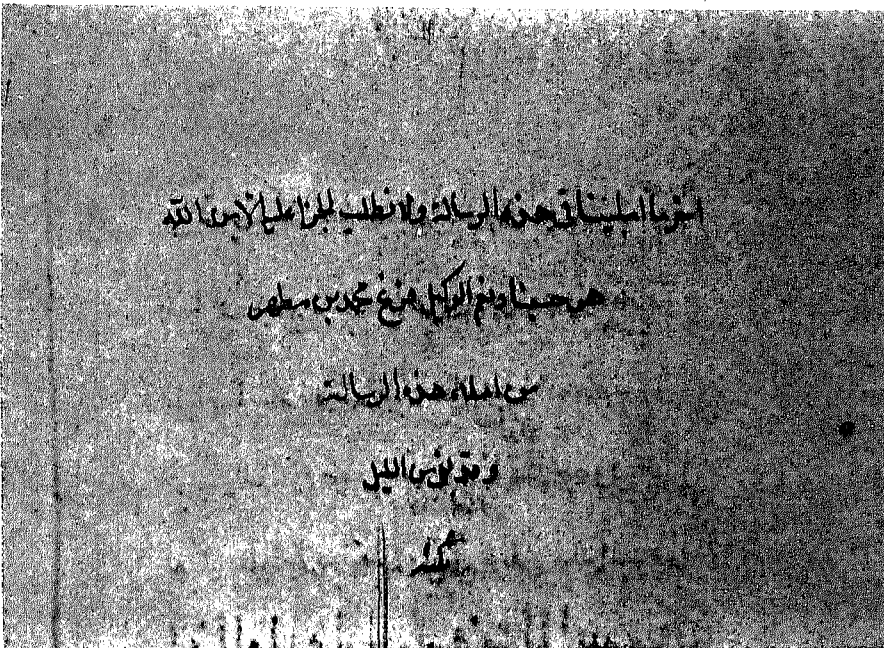 اخر ما املينا في هذه الرسالة ولا نطلب اجرنا عليها الا من الله
هو حسبنا ونعم الوكيل فرغ محمد بن مطهر
من املاء هذه الرسالة
وقد بقي من الليل